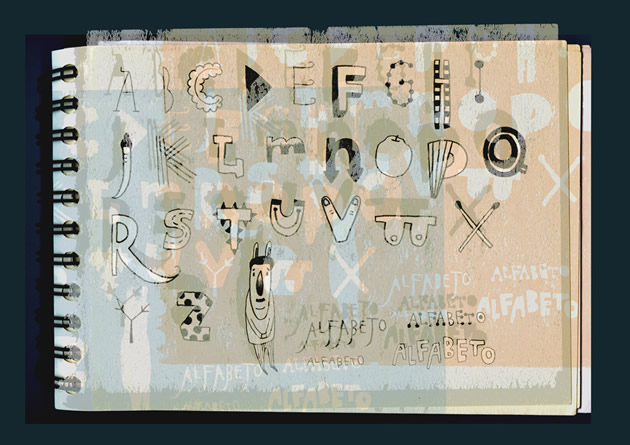 A B C D E F G H I
J K L m n O P Q
R S T U V W X
Y Z
ALFABETO ALFABETO
ALFABETO ALFABETO ALFABETO
ALFABETO ALFABETO
ALFABETO ALFABETO
ALFABETO ALFABETO
ALFABETO